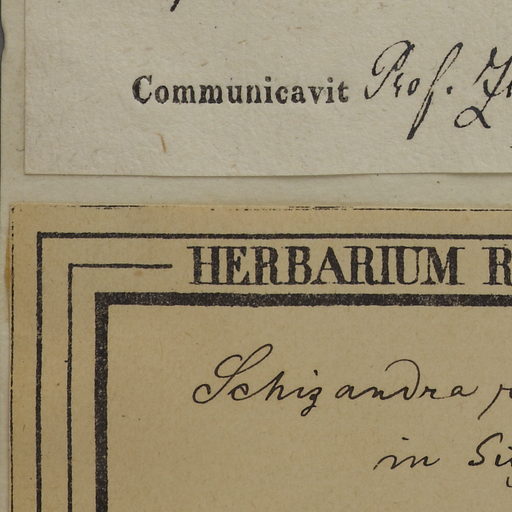 Communicavit Prof.
HERBARIUM
Schizandra
in